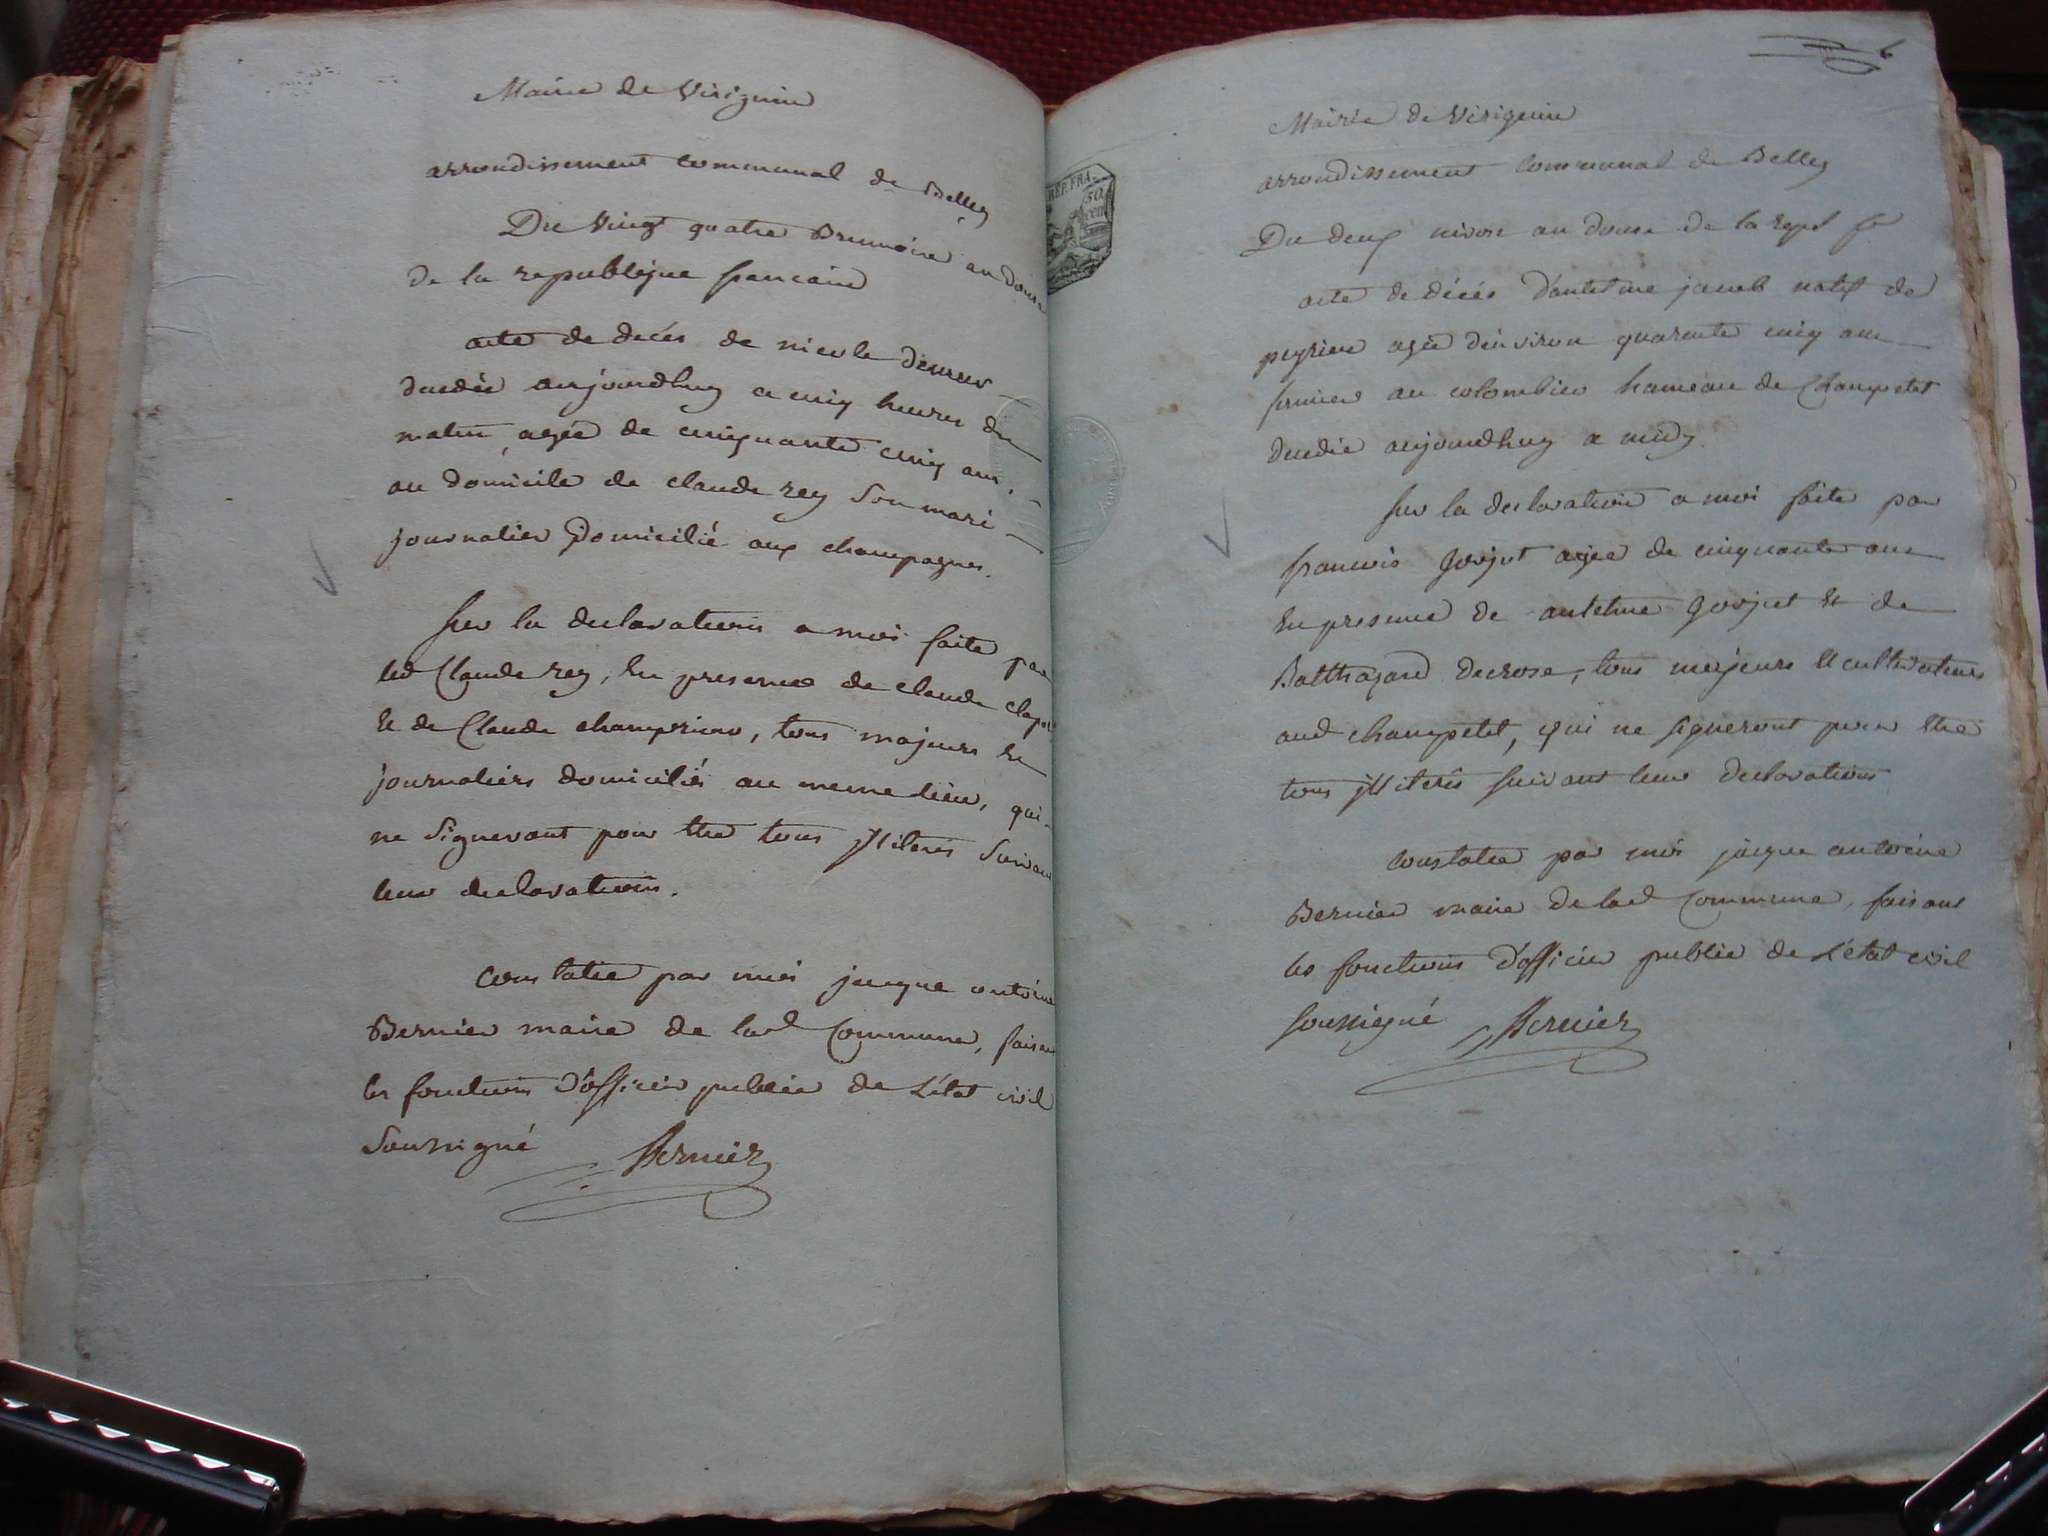 Mairie de Virignin
arrondissement communal de Belley
Du vingt quatre Brumaire an douze
de la republique francaise
acte de decés de nicole
decedée aujourdhuy a cinq heures du
matin, agée de cinquante cinq ans,
au domicile de claude rey son mari
journalier domicilié aux champagnes.
sur la declaration a moi faite par
led Claude rey, en presence de claude
et de Claude, tous majeurs et
journaliers domiciliés au meme lieu, qui
ne signeront pour etre tous illiterés suivant
leur declaration.
constatée par moi jacque antoine
Bernier maire de lad commune, faisant
les fonctions d'officier public de l'état civil
soussigné Bernier
6
Mairie de Virignin
arrondissement communal de Belley
REP. FRA.
50 cent
Du deux nivose an douze de la repub fr
acte de décés d'antelme jacob natif de
peyrieu agée d'environ quarente cinq ans
fermier au colombier hameau de Champetel
decedée aujourdhuy a midy
sur la declaration a moi faite par
francois Goujet agée de cinquante ans
en presence de antelme Goujet et de
Balthazard decrose, tous majeurs et cultivateurs
aud champetel, qui ne signeront pour etre
tous illiterés suivant leur declaration
constatée par moi jacque antoine
Bernier maire de lad commune, faisant
les fonctions d'officier public de l'état civil
soussigné Bernier